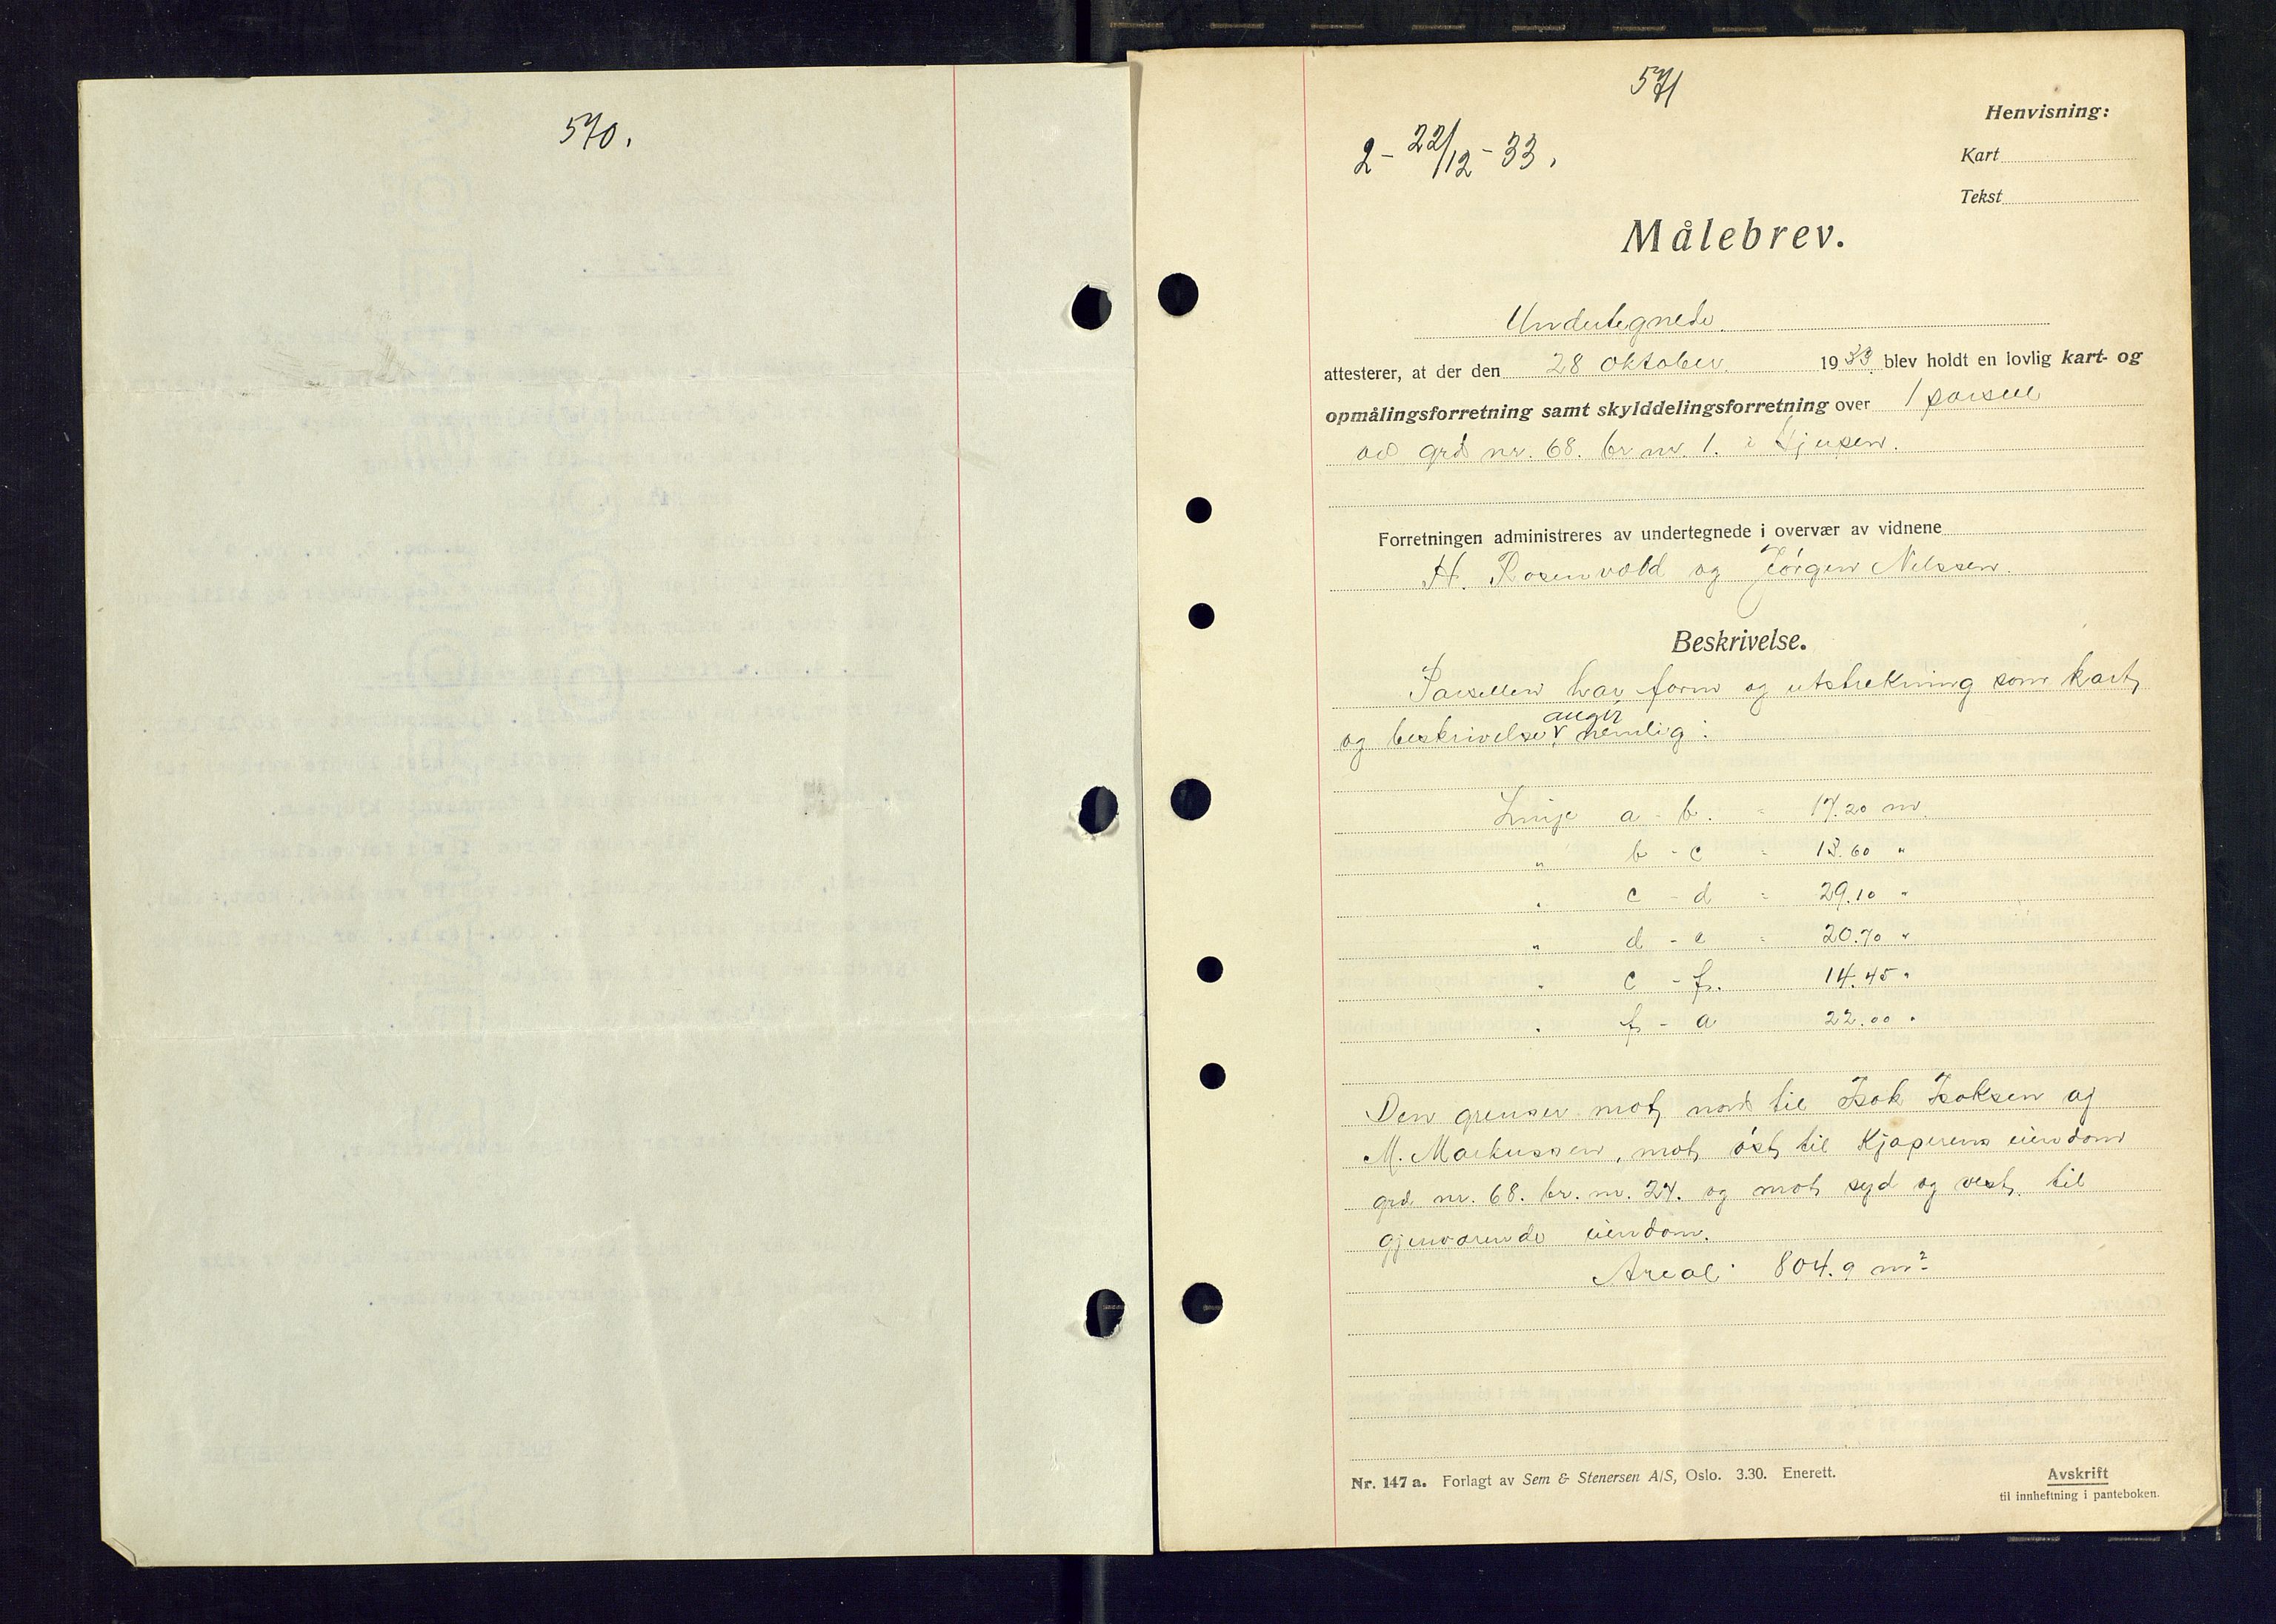 570.
571
2 - 22/12 - 33.
Henvisning:
Kart
Tekst
Målebrev.
Undertegnede
attesterer, at der den 28 oktober 1933 blev holdt en lovlig kart- og
opmålingsforretning samt skylddelingsforretning over 1 parsell
av grd nr. 68. br nr. 1. i
Forretningen administreres av undertegnede i overvær av vidnene
H. Rosenvold og Jörgen Nilssen.
Beskrivelse.
Parsellen har form og utstrekning som kart
angir
og beskrivelse nemlig:
Linje a - b. = 17.20 m.
" b - c = 13.60 "
" c - d = 29.10 "
" d - e = 20.70 "
" e - f. 14.45 "
" f - a 22.00 "
Den grenser mot nord til Isak Isaksen og
M. Markussen, mot öst til Kjøperens eiendom
grd nr. 68. br. nr. 24. og mot syd og vest til
gjenværende eiendom.
Areal: 804.9 m²
Nr. 147 a. Forlagt av Sem & Stenersen A/S, Oslo. 3.30. Enerett.
Avskrift
til innheftning i panteboken.